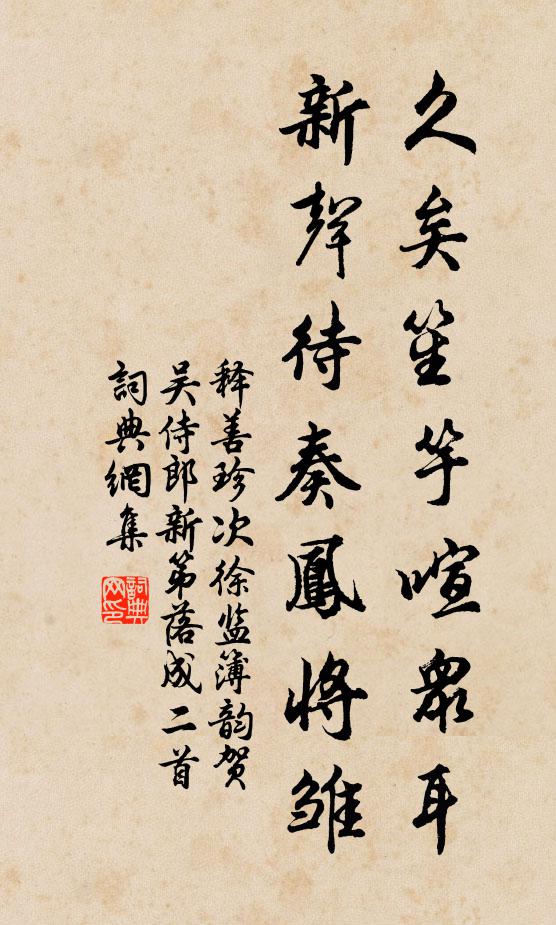 久矣笙竽喧衆耳
新聲待奏鳳將雏
释善珍次徐监簿韵贺
吴侍郎新第落成二首
詞典網集
詞典网印